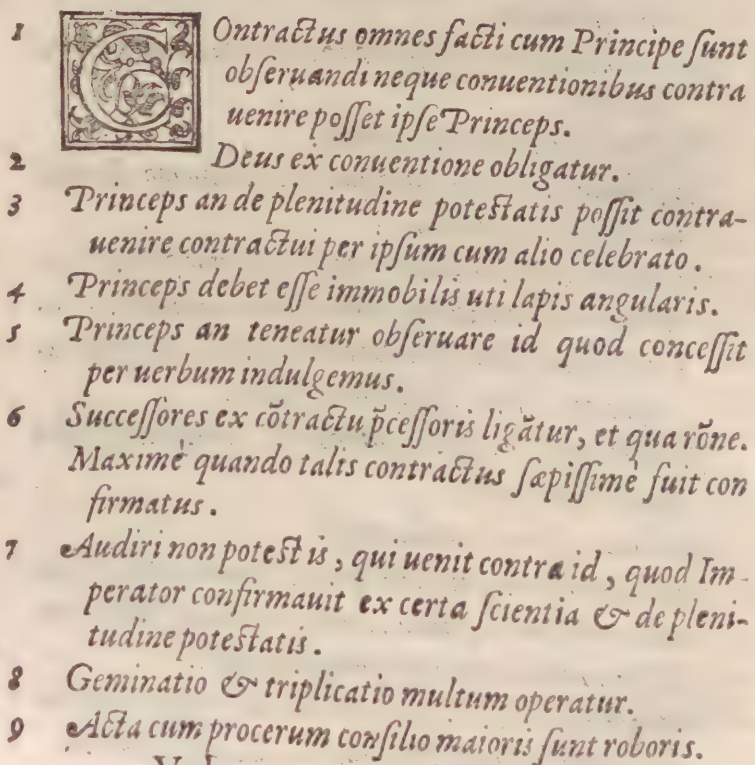 1 COntractus omnes facti cum Principe sunt
obseruandi neque conuentionibus contra
uenire posset ipse Princeps.
2 Deus ex conuentione obligatur.
3 Princeps an de plenitudine potestatis possit contra-
uenire contractui per ipsum cum alio celebrato.
4 Princeps debet esse immobilis uti lapis angularis.
5 Princeps an teneatur obseruare id quod concessit
per uerbum indulgemus.
6 Successores ex cõtractu p̃cessoris ligãtur, et qua rõne.
Maximè quando talis contractus sæpissimè fuit con
firmatus.
7 Audiri non potest is, qui uenit contra id, quod Im-
perator confirmauit ex certa scientia & de pleni-
tudine potestatis.
8 Geminatio & triplicatio multum operatur.
9 Acta cum procerum consilio maioris sunt roboris.